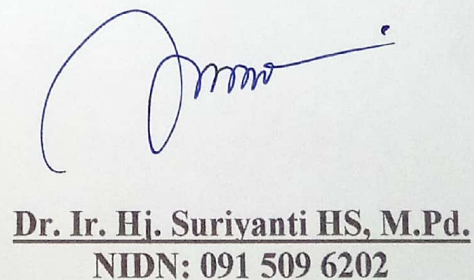 Dr. Ir. Hj. Suriyanti HS, M.Pd.
NIDN: 091 509 6202